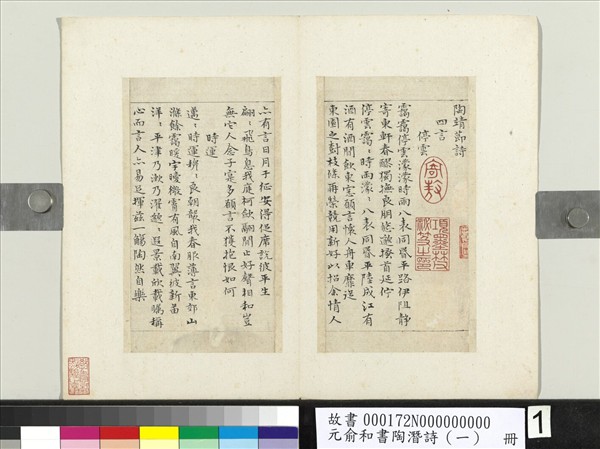 陶靖節詩
四言
停雲
靄靄停雲濛濛時雨八表同昏平路伊阻靜
寄東軒春醪獨撫良朋悠邈搔首延佇
停雲靄〻時雨濛〻八表同昏平陸成江有
酒有酒閒飲東窓願言懷人舟車靡從
東園之樹枝條再榮競用新好以招余情人
亦有言日月于征安得促席說彼平生
翩〻飛鳥息我庭柯斂翮閒止好聲相和豈
無它人念子寔多願言不獲抱恨如何
時運
邁〻時運穆〻良朝襲我春服薄言東郊山
滌餘靄曖宇曖微霄有風自南翼彼新苗
洋〻平津乃漱乃濯邈〻遐景載欣載矚稱
心而言人亦易足揮茲一觴陶然自樂
故書 000172N000000000
元俞和書陶潛詩（一） 冊
1